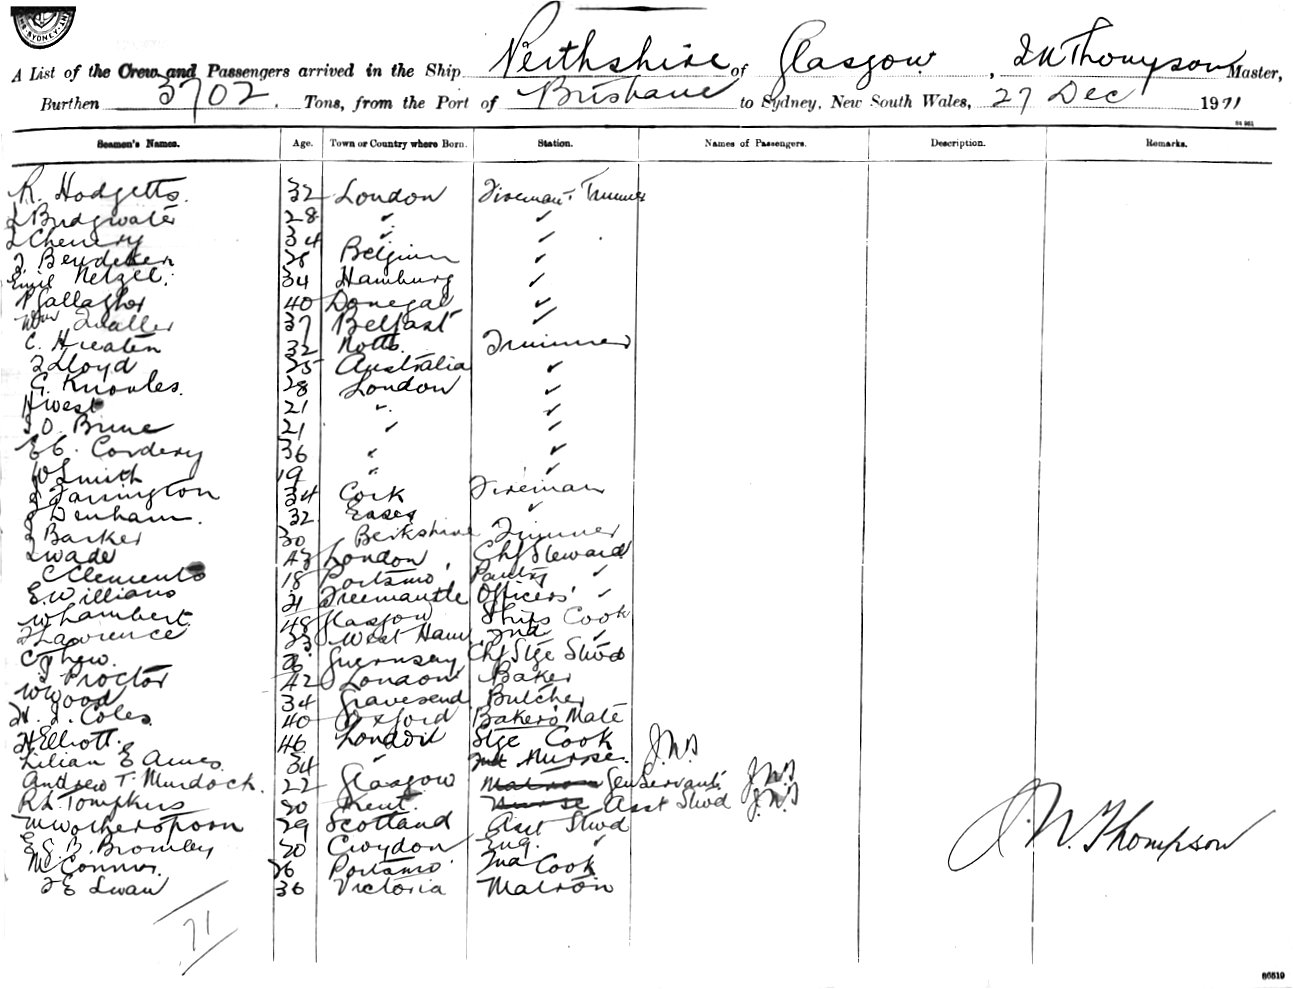 SYDNEY
A List of the Crew and Passengers arrived in the Ship Perthshire of Glasgow, J N Thompson Master,
Burthen 3702. Tons, from the Port of Brisbane to Sydney, New South Wales, 27 Dec 1911
64 951
Seamen's Names. Age. Town or Country where Born. Station. Names of Passengers. Description. Remarks.
R. Hodgetts. 32 London Fireman & Trimmer
J Bridgwater 28 " "
J Chenery 34 " "
28 Belgium "
Emil Netzel. 34 Hamburg "
P Gallagher 40 Donegal "
Wm 37 Belfast "
C. Heaton 32 Notts. Trimmer
J Lloyd 25 Australia "
G. Knowles. 28 London "
H West 21 " "
J O. Brine 21 " "
E C. Cordery 36 " "
W Smith 19 " "
J Farrington 34 Cork Fireman
J Denham. 32 Essex "
J Barker 30 Berkshire Trimmer
J Wade 43 London Chf Steward
C Clements 18 Portsmo, Pantry "
E. Williams 21 Freemantle Officers' "
W Lambert. 48 Glasgow Ships Cook
J Lawrence 23 West Ham 2nd "
C Thew. Guernsey Chf Stge Stwd
J Proctor 42 London Baker
W Wood 34 Gravesend Butcher
H. J. Coles. 40 Oxford Bakers Mate
H Elliott. 46 London Stge Cook
Lilian E Ames 34 " Nurse. J.N.T
Andrew T. Murdock. 22 Glasgow Matron Gen Servant. J.N.T
R L Tompkins 30 Kent. Nurse Asst Stwd J.N.T
M Wotherspoon 29 Scotland Asst Stwd
E G. B. Bromley 20 Croydon Eng. "
M Connor. 26 Portsmo. 2nd Cook
J E Swan 36 Victoria Matron
J. N. Thompson
71
86519